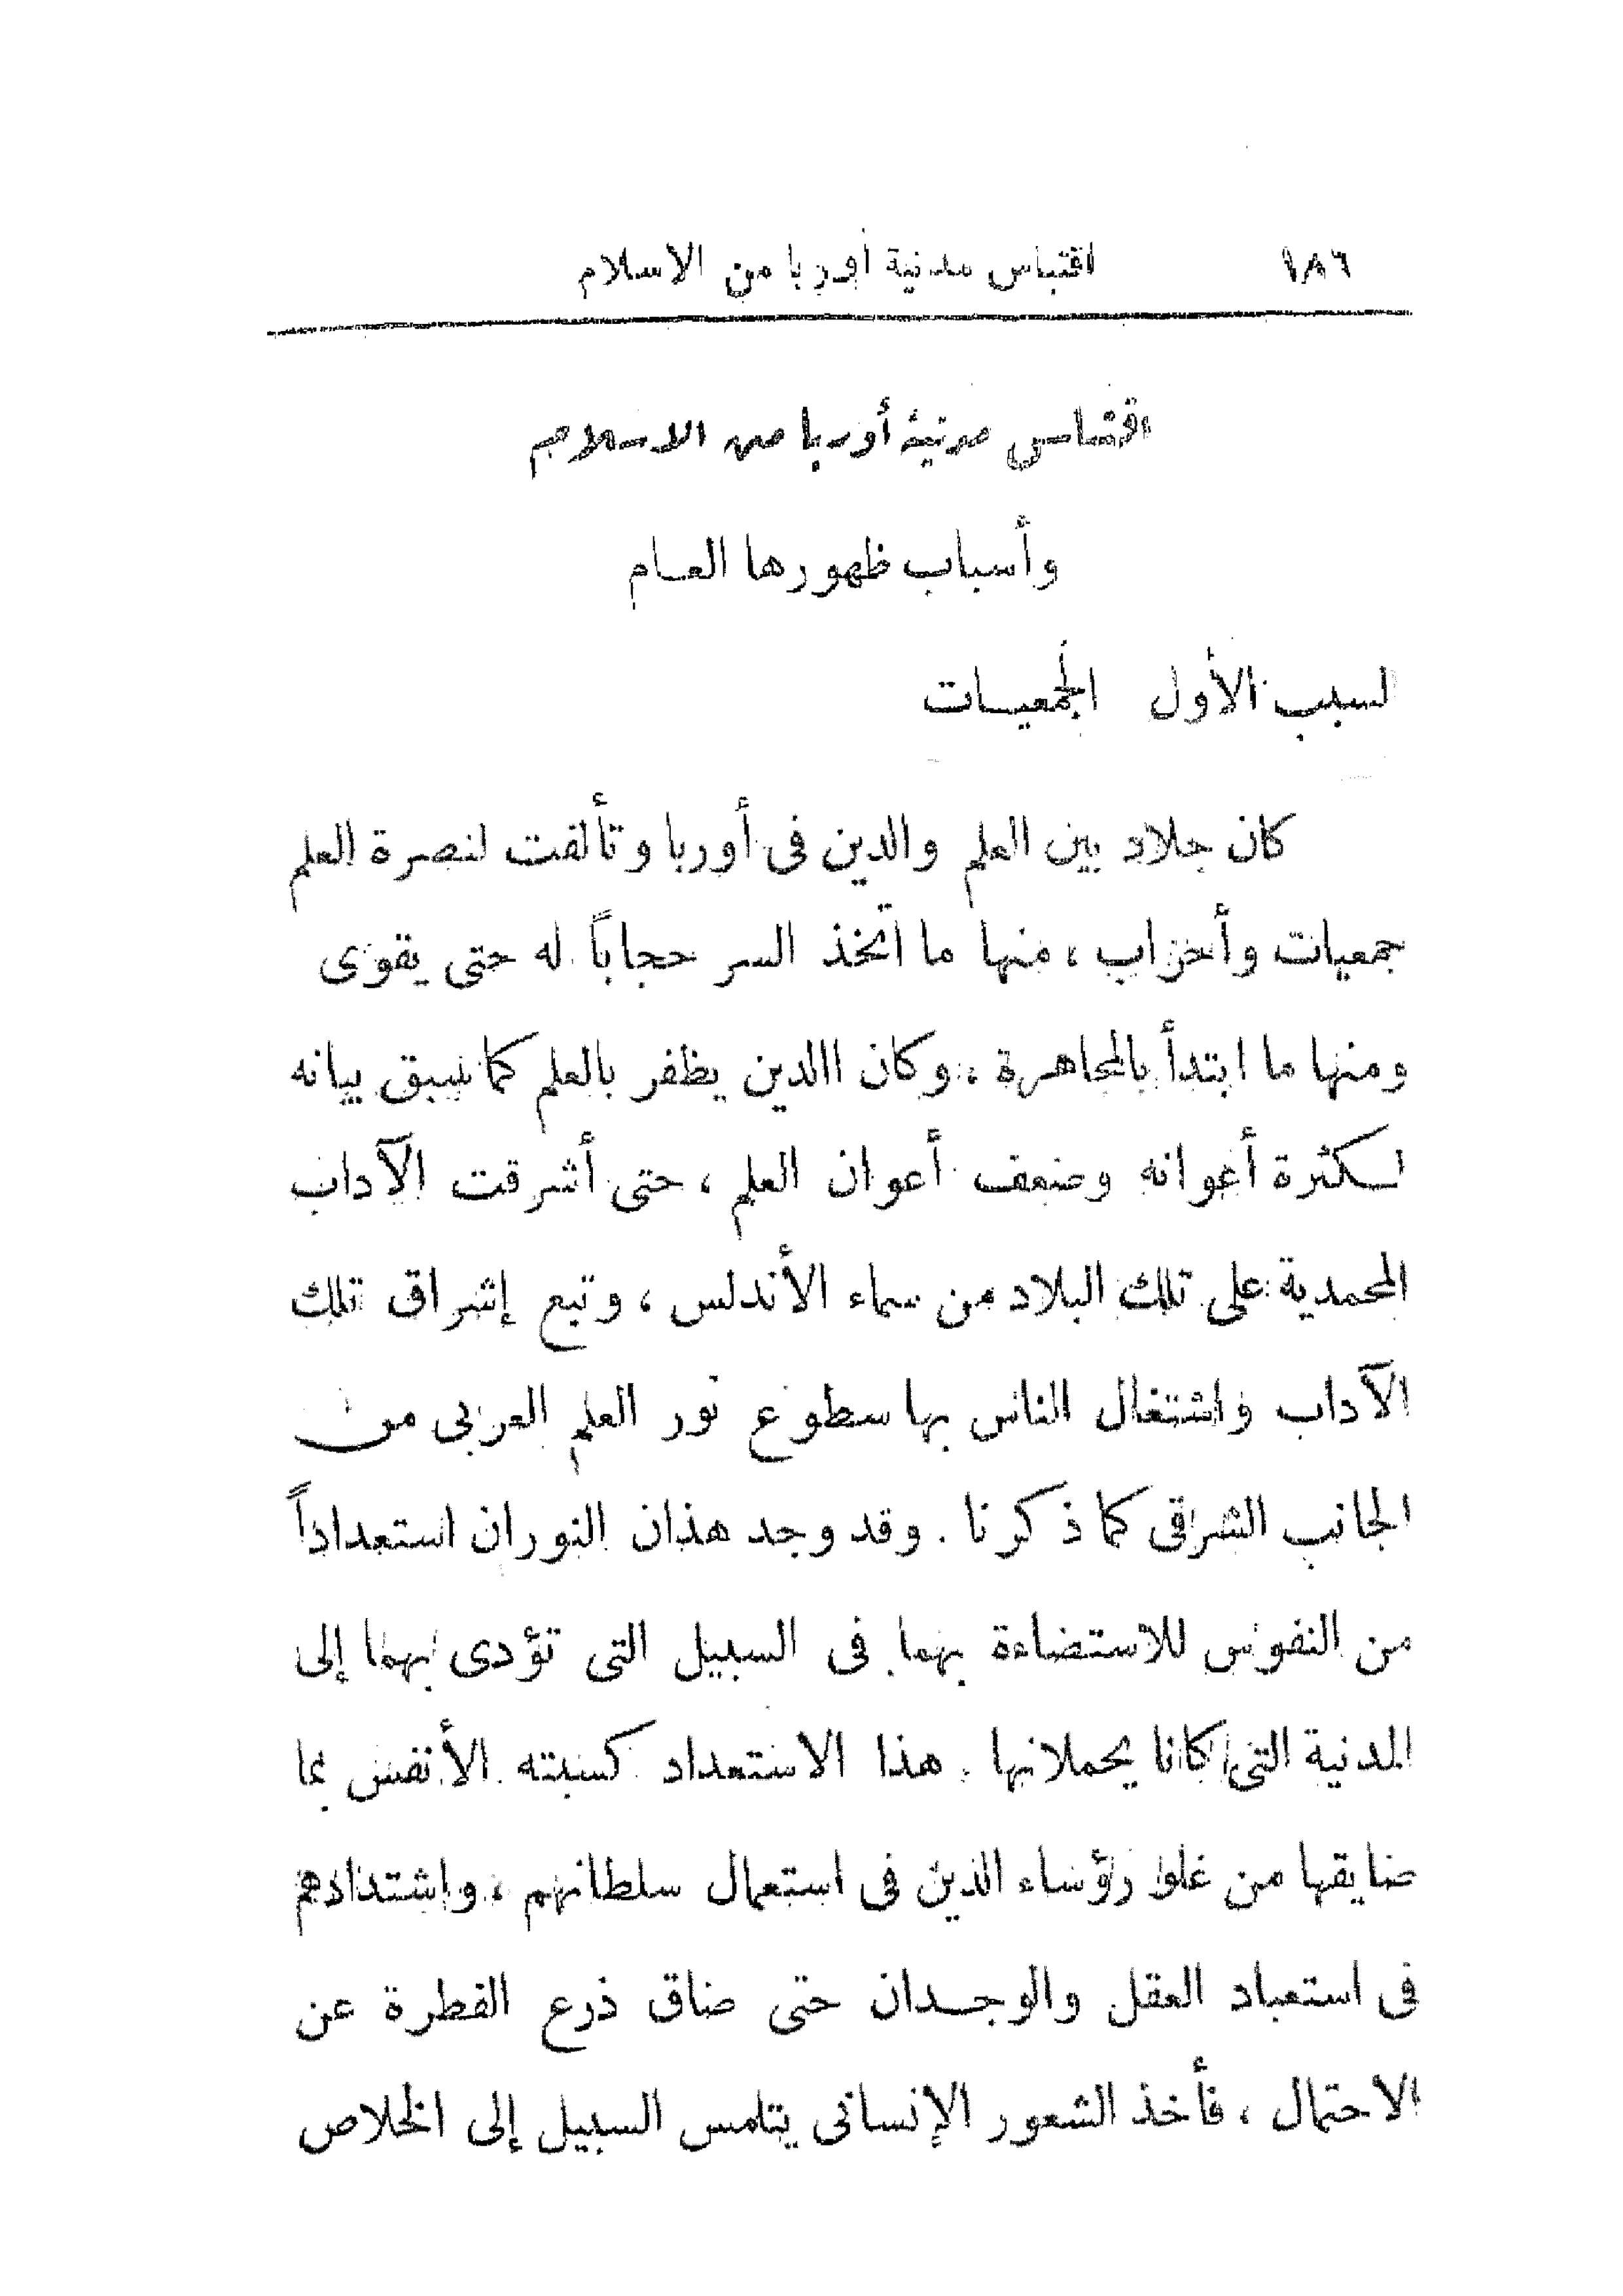 ١٨٦ اقتباس مدنية أوربا من الاسلام
اقتباس مدنية أوربا من الاسلام
وأسباب ظهورها العام
لسبب الأول الجمعيات
كان جلاد بين العلم والدين فى أوربا وتألفت لنصرة العلم
جمعيات وأحزاب ، منها ما اتخذ السر حجاباً له حتى يقوى
ومنها ما ابتدأ بالمجاهرة ، وكان االدين يظفر بالعلم كما سبق بيانه
لكثرة أعوانه وضعف أعوان العلم ، حتى أشرقت الآداب
المحمدية على تلك البلاد من سماء الأندلس ، وتبع إشراق تلك
الآداب واشتغال الناس بها سطوع نور العلم العربى من
الجانب الشراقى كما ذكرنا . وقد وجد هذان النوران استعداداً
من النفوس للاستضاءة بهما فى السبيل التى تؤدى بهما إلى
المدنية التى كانا يحملانها . هذا الاستعداد كسبته الأنفس بما
ضايقها من غلو رؤساء الدين فى استعمال سلطانهم ، واشتدادهم
فى استعباد العقل والوجدان حتى ضاق ذرع الفطرة عن
الاحتمال ، فأخذ الشعور الإنسانى يتلمس السبيل إلى الخلاص